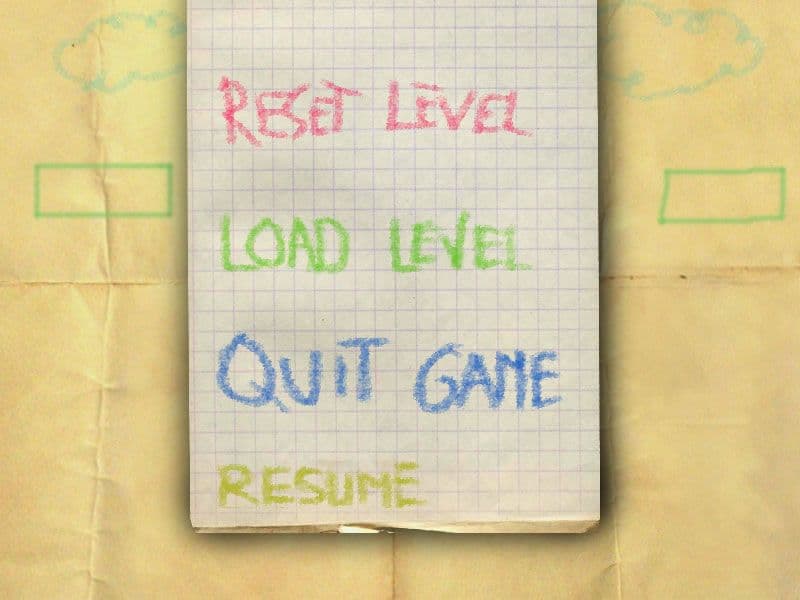 RESET LEVEL
LOAD LEVEL
QUIT GAME
RESUME